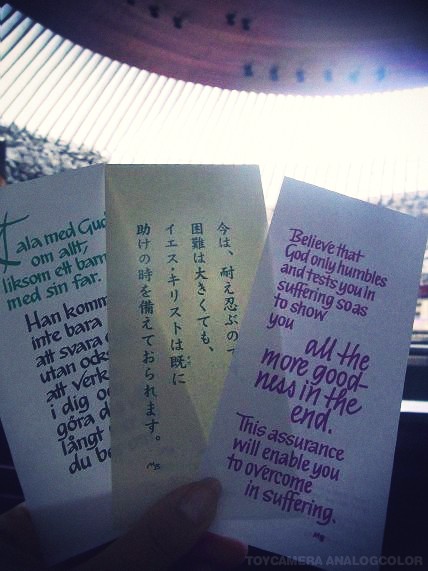 Tala med Gud
om allt,
liksom ett barn
med sin far.
Han komm
inte bara
att svara
utan ocks
att verk
i dig oc
göra d
långt
du be
今は、耐え忍ぶの
困難は大きくても、
イエス・キリストは既に
助けの時を備えておられます。
MB
Believe that
God only humbles
and tests you in
suffering so as
to show
you
all the
more good-
ness in the
end.
This assurance
will enable you
to overcome
in suffering.
MB
TOYCAMERA ANALOGCOLOR